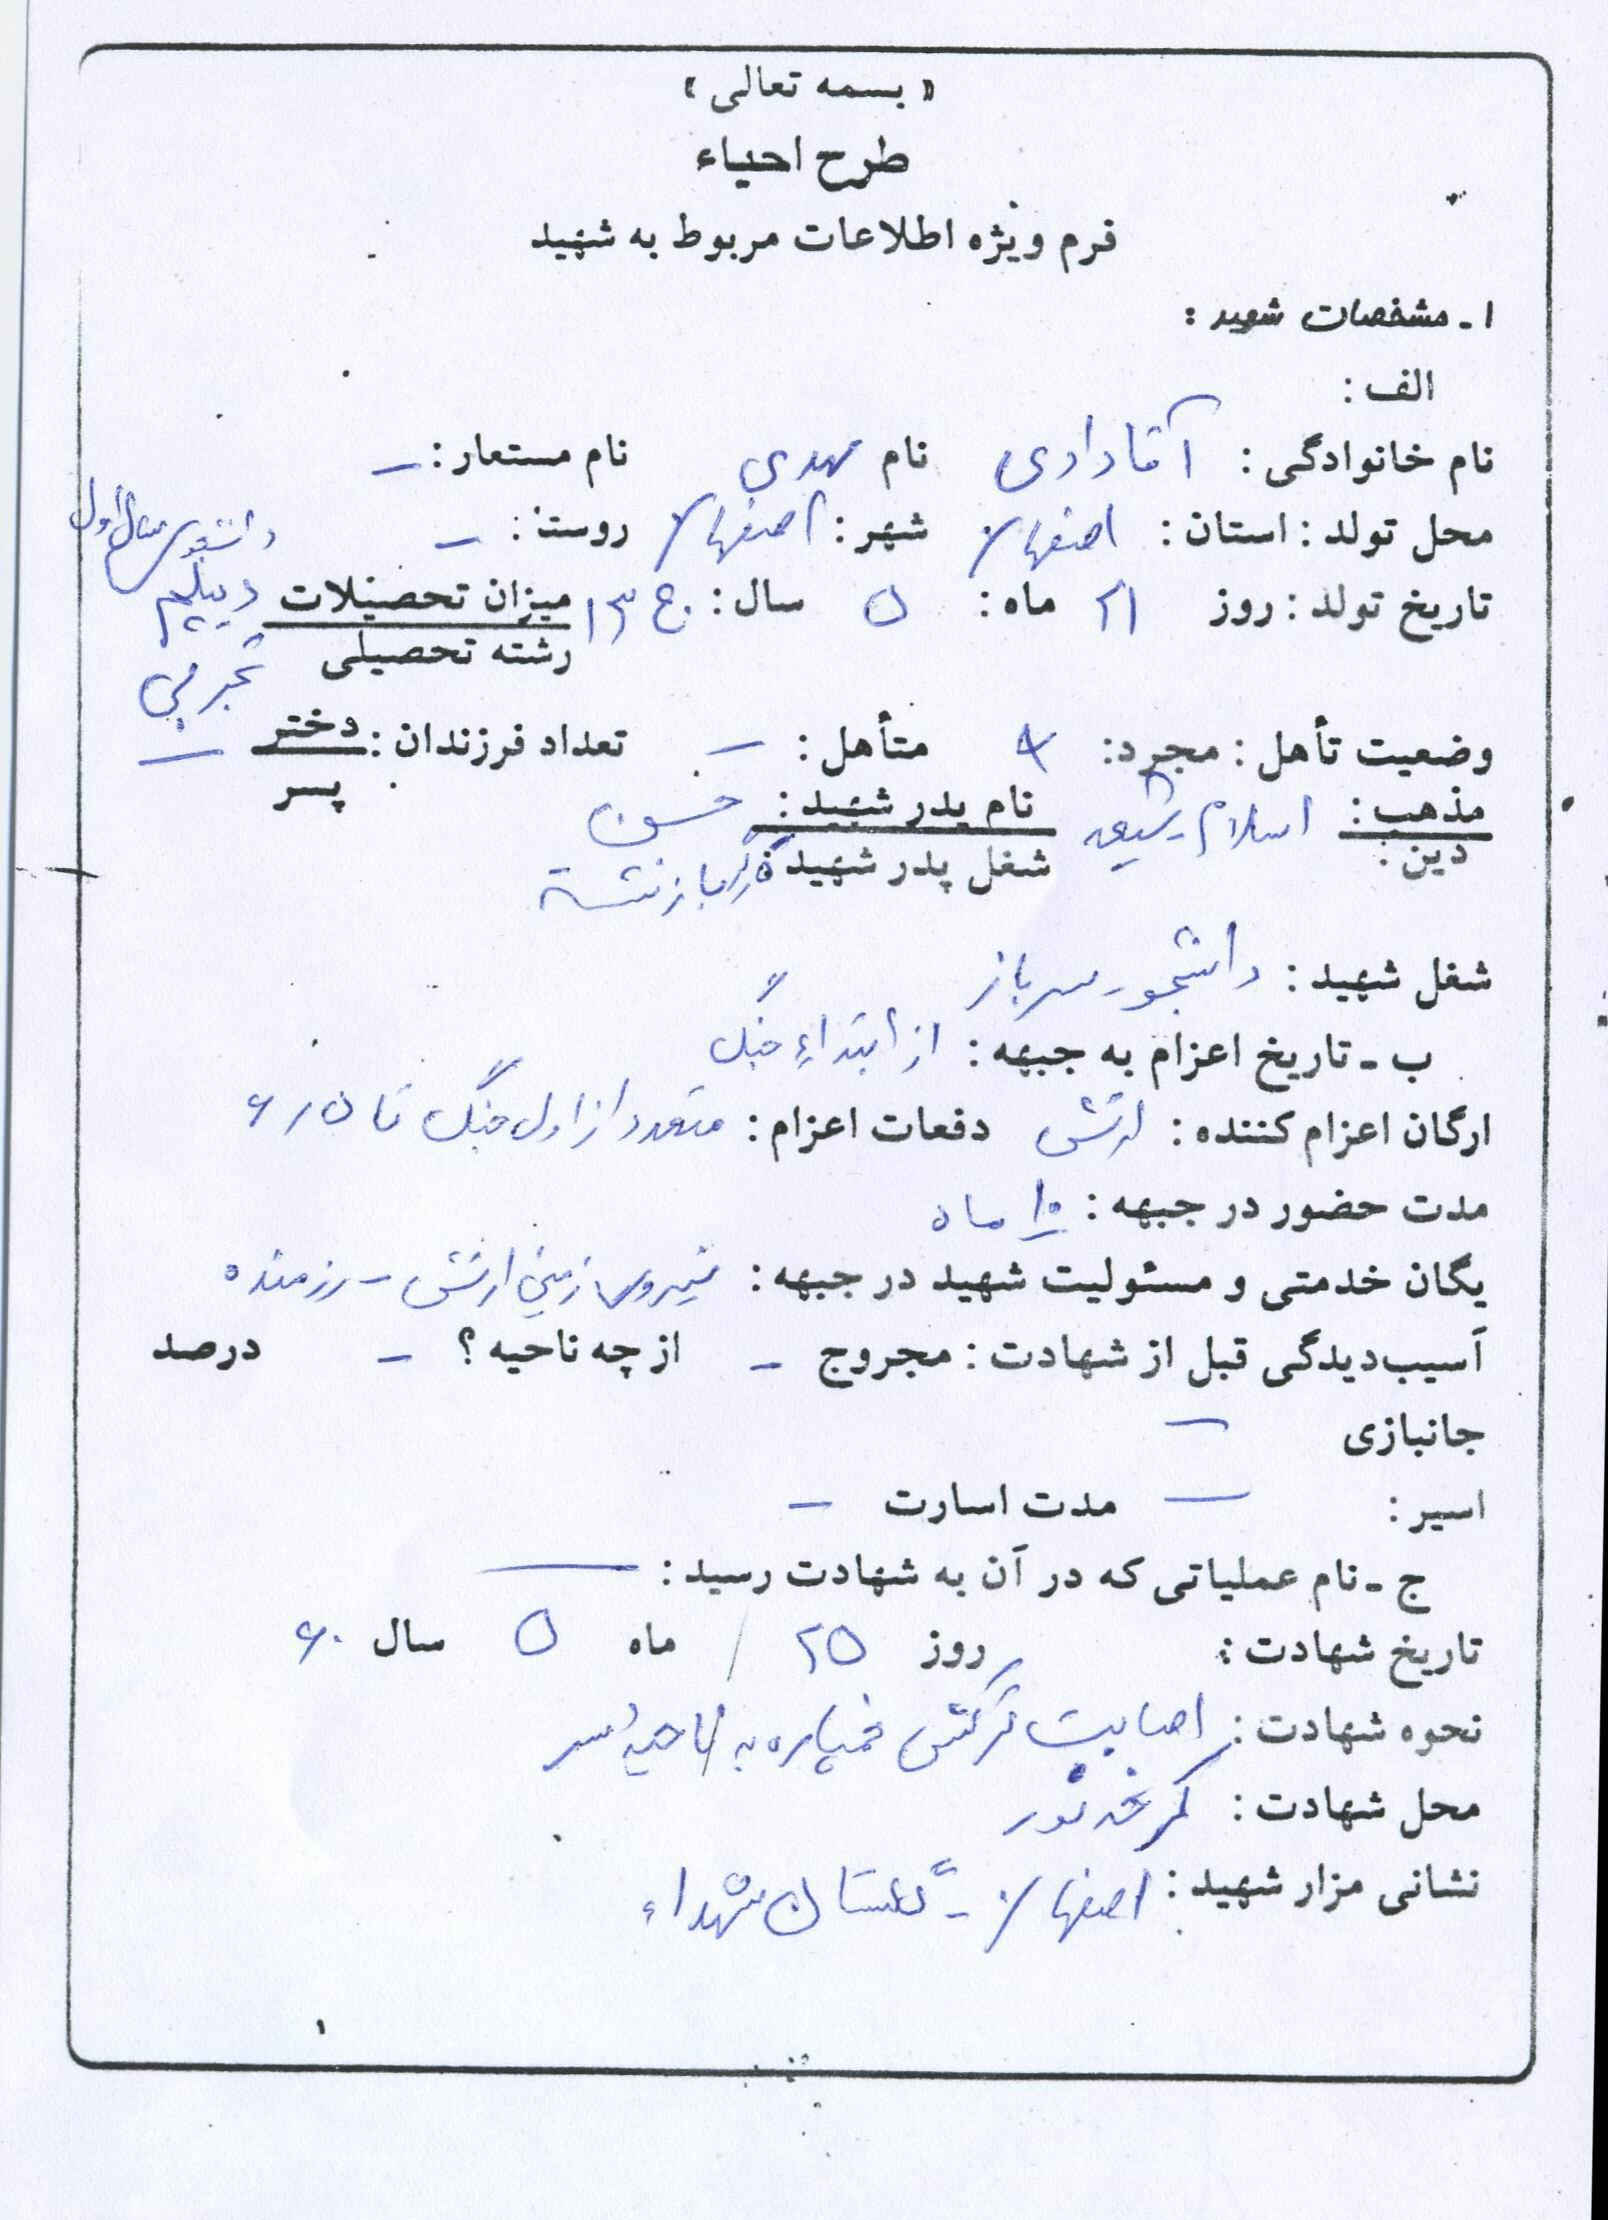 « بسمه تعالی »
طرح احیاء
فرم ویژه اطلاعات مربوط به شهید
۱ - مشخصات شهید :
الف :
نام خانوادگی : آقادادی نام مهدی نام مستعار : -
محل تولد : استان : اصفهان شهر : اصفهان روستا : -
دانشجوی سال اول
تاریخ تولد : روز ۲۱ ماه : ۵ سال : ۱۳۴۰ میزان تحصیلات دیپلم
رشته تحصیلی تجربی
وضعیت تأهل : مجرد : متأهل : - تعداد فرزندان : دختر -
پسر
مذهب : اسلام شیعه نام پدر شهید : حسن
دین : شغل پدر شهید کارگر بازنشسته
شغل شهید : دانشجو - سرباز
ب - تاریخ اعزام به جبهه : از ابتداء جنگ
ارگان اعزام کننده : ارتش دفعات اعزام : متعدد از اول جنگ تا ۶۰/۵
مدت حضور در جبهه : ۱۰ ماه
یگان خدمتی و مسئولیت شهید در جبهه : نیروی زمینی ارتش - رزمنده
آسیب‌دیدگی قبل از شهادت : مجروح - از چه ناحیه ؟ - درصد
جانبازی -
اسیر : - مدت اسارت -
ج - نام عملیاتی که در آن به شهادت رسید : -
تاریخ شهادت : روز ۲۵ / ماه ۵ سال ۶۰
نحوه شهادت : اصابت ترکش خمپاره به ناحیه سر
محل شهادت : کرخه نور
نشانی مزار شهید : اصفهان - گلستان شهداء
۱